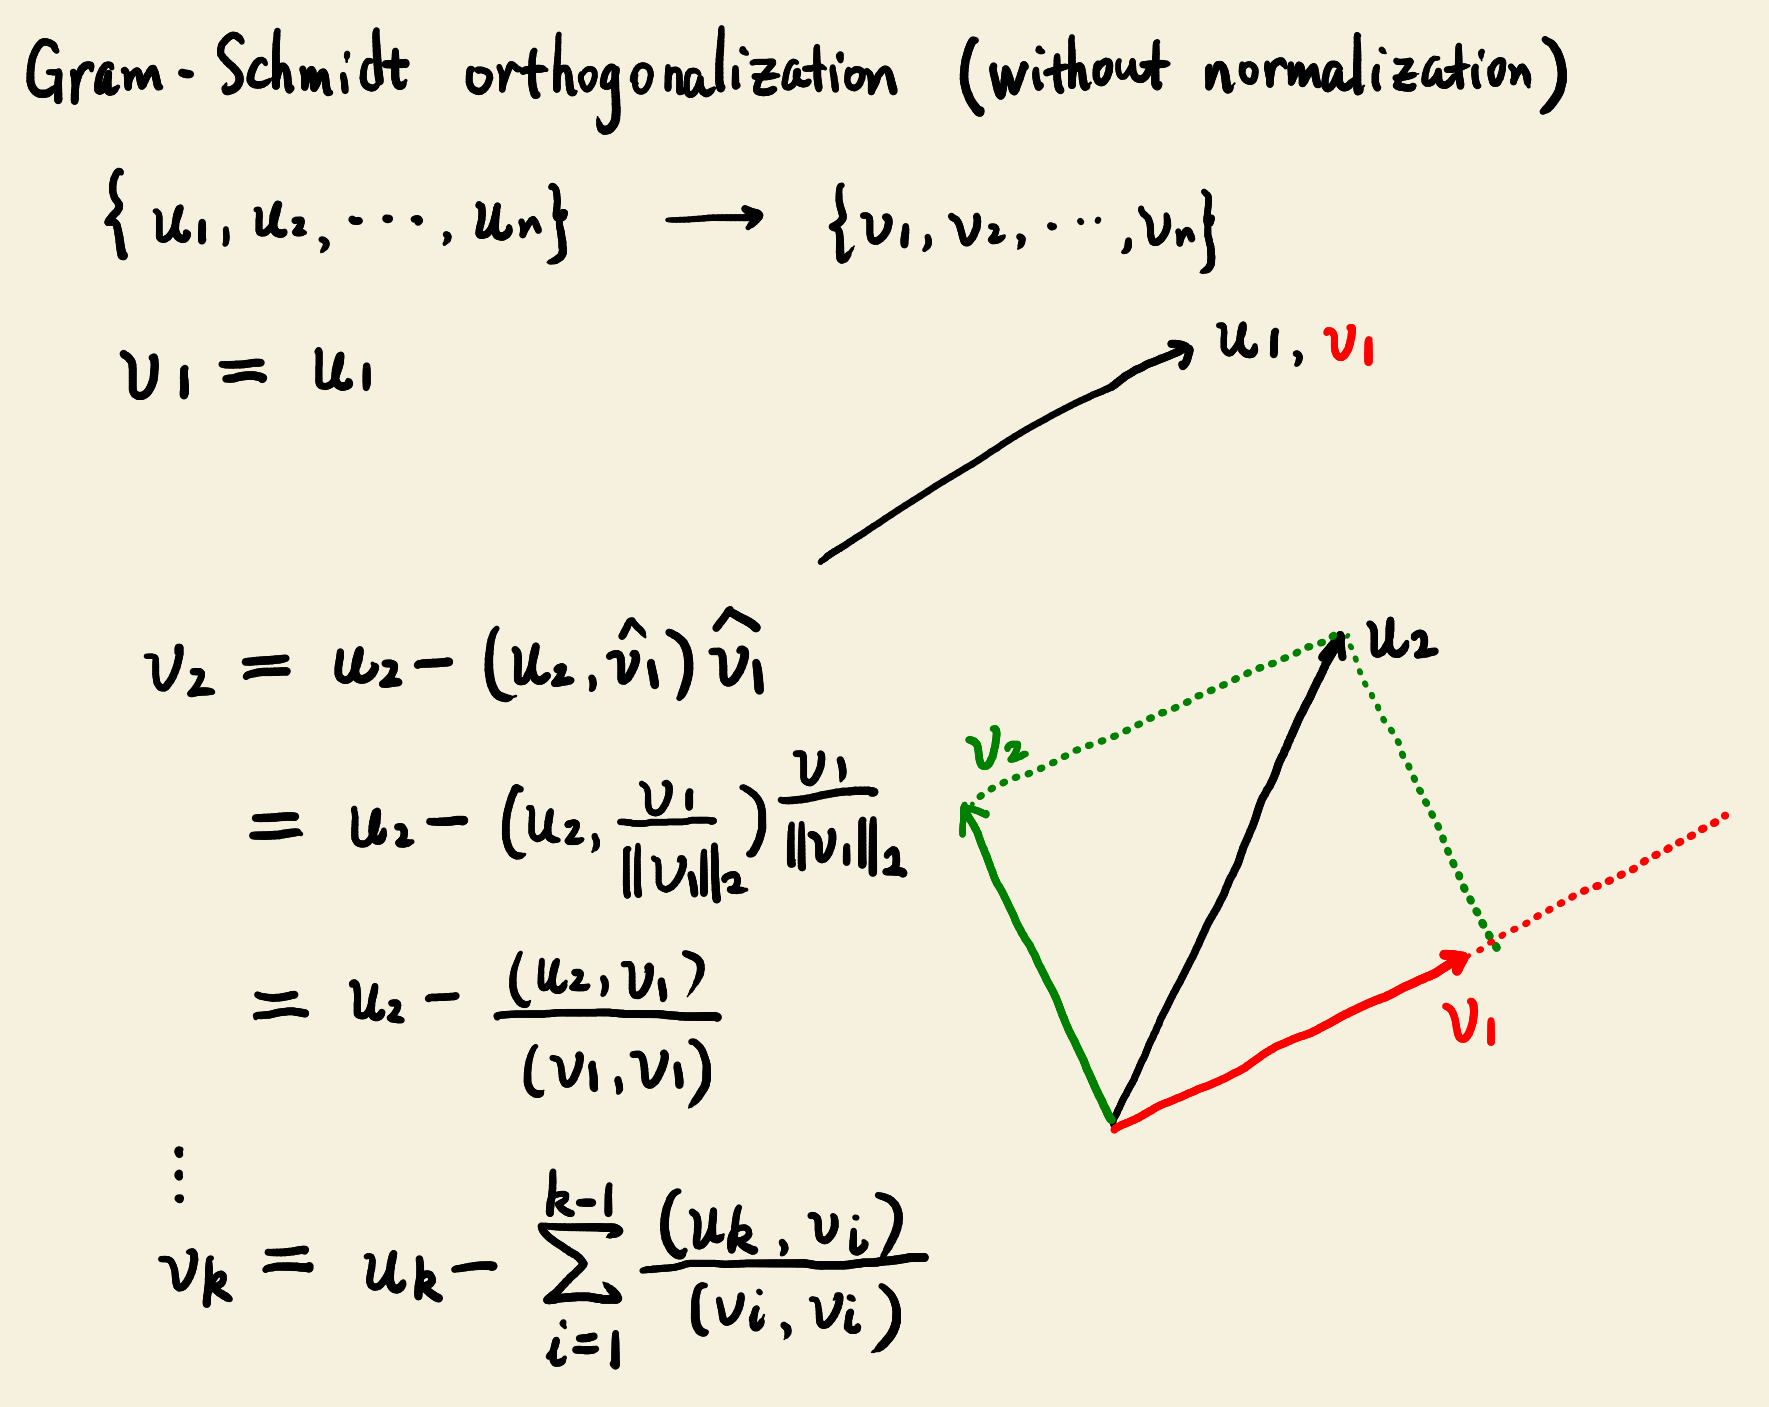 Gram-Schmidt orthogonalization (without normalization)
{u₁, u₂, ⋯, uₙ} → {v₁, v₂, ⋯, vₙ}
v₁ = u₁
u₁, v₁
v₂ = u₂ - (u₂, v̂₁) v̂₁
= u₂ - (u₂, v₁/‖v₁‖₂) v₁/‖v₁‖₂
= u₂ - (u₂, v₁)/(v₁, v₁)
⋮
vₖ = uₖ - ∑_{i=1}^{k-1} (uₖ, vᵢ)/(vᵢ, vᵢ)
u₂
v₂
v₁